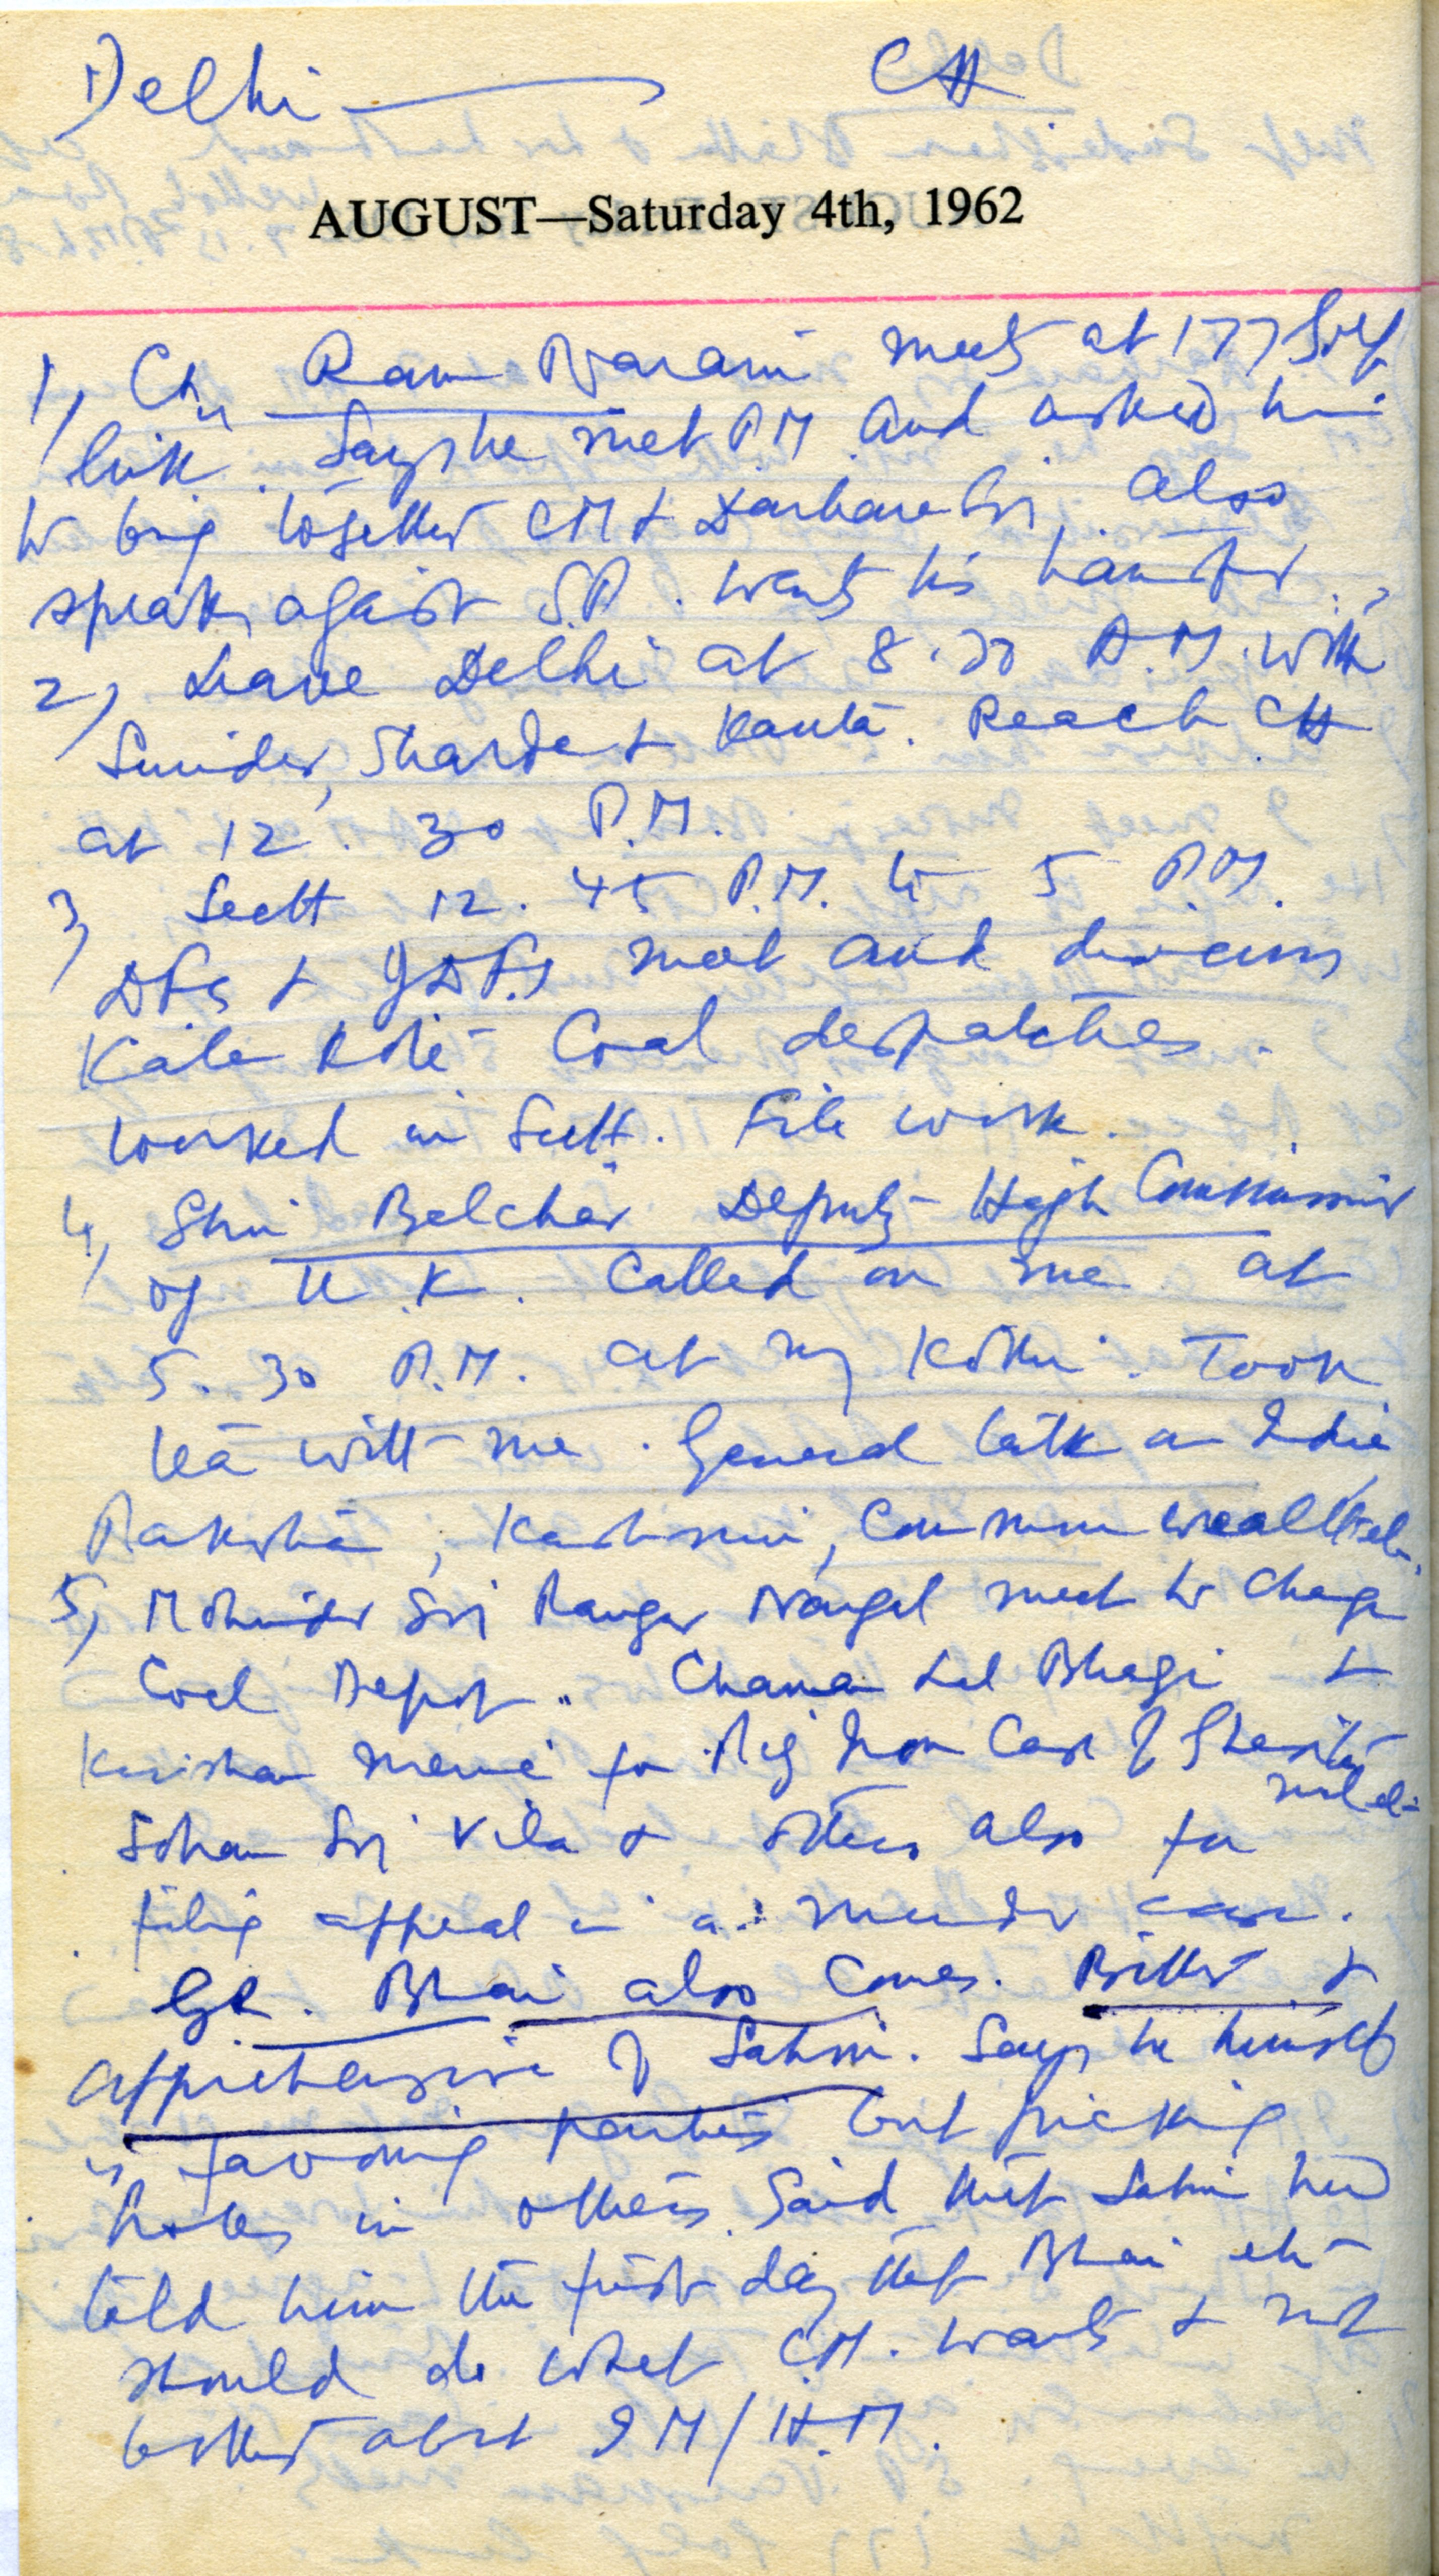 Delhi — CH
AUGUST—Saturday 4th, 1962
1, Ch. Ram Narain meets at 177 Golf
link. Says he met P.M. and asked him
to bring together CM & Darbara Sri. Also
speaks against S.P. wants his transfer.
2, Leave Delhi at 8.30 A.M. with
Surinder, Sharda & Kanta. Reach CH
at 12.30 P.M.
3, Sectt 12.45 P.M. to 5 P.M.
DFS & JDFS meet and discuss
Coal despatches.
Worked in Sectt. File work.
4, Shri Belcher Deputy High Commissioner
of U.K. Called on me at
5.30 P.M. at my Kothi. Took
tea with me. General talk on India
Pakistan, Kashmir, Commonwealth etc.
5, Mohinder Sri Nangal meet to change
Coal Depot. Chaman Lal Bhagi &
Krishan for Pig Iron Case of
Sohan Sri & others also for
filing appeal in a murder case.
Bhai also comes. Bitter &
apprehensive of Sahni. Says he himself
is favouring parties but pricking
holes in others. Said that Sahni had
told him the first day that Bhai etc
should do what C.M. wants & not
bother about IM/H.M.